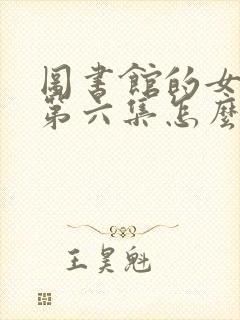 圖書館的女
第六集怎麼
王昊魁